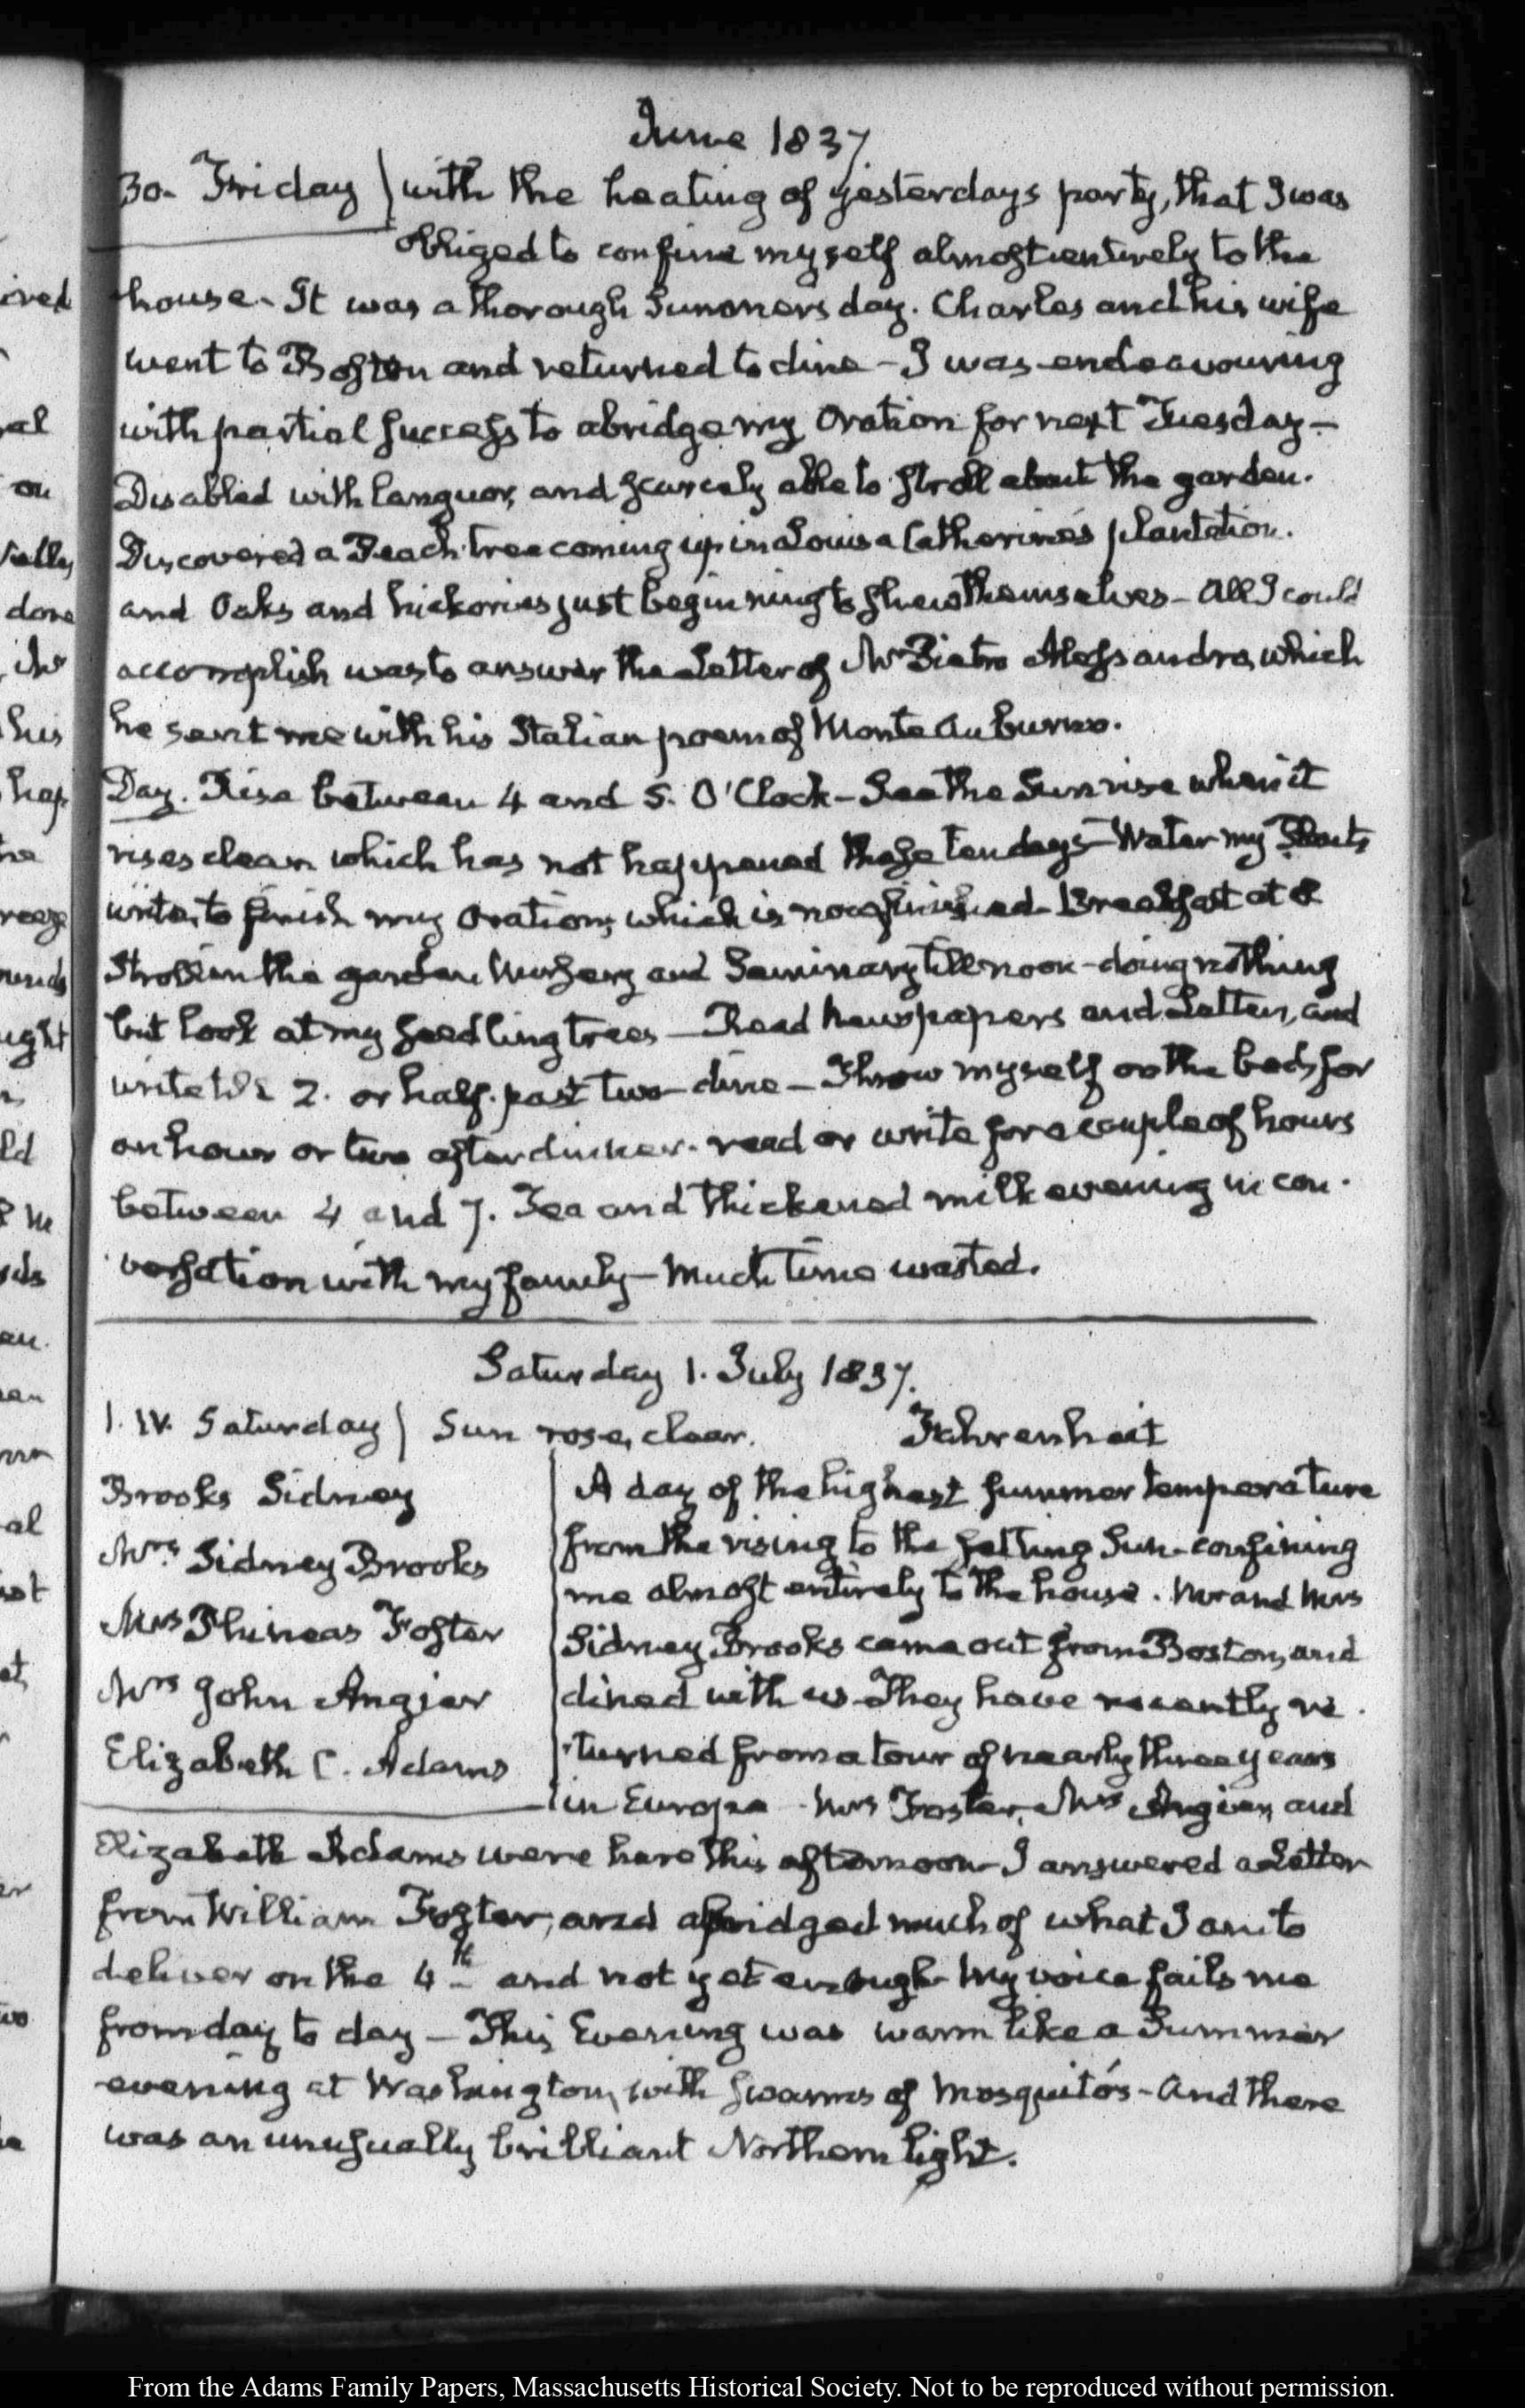 June 1837.
30. Friday) with the heating of yesterdays party, that I was
obliged to confine myself almost entirely to the
house. It was a thorough Summers day. Charles and his wife
went to Boston and returned to dine – I was endeavouring
with partial success to abridge my Oration for next Tuesday –
Disabled with languor, and scarcely able to stroll about the garden.
Discovered a Peach tree coming up in Louisa Catherine's plantation.
and Oaks and hickories just beginning to shew themselves – All I could
accomplish was to answer the Letter of Mr Pietro Alessandro, which
he sent me with his Italian poem of Monte Auburno.
Day. Rise between 4 and 5. O'Clock – See the Sun rise when it
rises clear which has not happened these ten days – Water my Plants
write, to finish my Oration, which is now finished – Breakfast at 8
Stroll in the garden Nursery and Seminary till noon – doing nothing
but look at my seedling trees – Read Newspapers and Letters, and
write till 2. or half past two – dine – Throw myself on the bed, for
an hour or two after dinner. read or write for a couple of hours
between 4 and 7. Tea and thickened milk evening in con-
versation with my family – Much time wasted.
Saturday 1. July 1837.
1. IV. Saturday) Sun rose, clear. Fahrenheit
Brooks Sidney
Mrs Sidney Brooks
Mrs Phineas Foster
Mrs John Angier
Elizabeth C. Adams
A day of the highest summer temperature
from the rising to the setting Sun – confining
me almost entirely to the house. Mr and Mrs
Sidney Brooks came out from Boston, and
dined with us – They have recently re-
turned from a tour of nearly three years
in Europe – Mrs Foster, Mrs Angier, and
Elizabeth Adams were here this afternoon – I answered a Letter
from William Foster, and abridged much of what I am to
deliver on the 4th and not yet enough – My voice fails me
from day to day – This Evening was warm like a Summer
evening at Washington, with swarms of Mosquito's – And there
was an unusually brilliant Northern light.
From the Adams Family Papers, Massachusetts Historical Society. Not to be reproduced without permission.